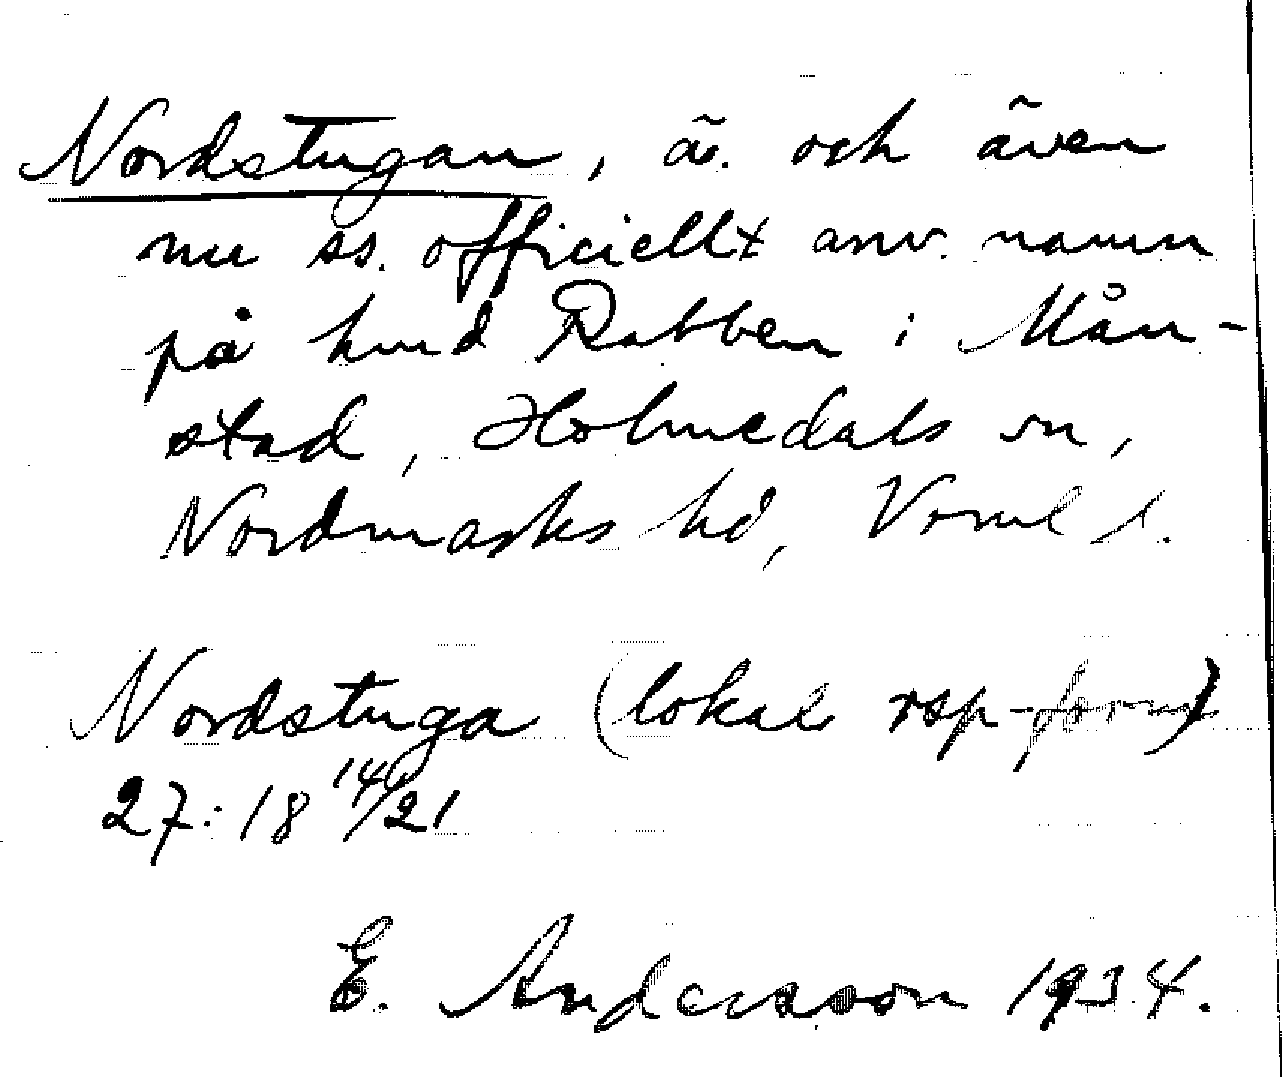 Nordstugan, ä. och även
nu ss. officiellt anv. namn
på hmd Rabben i Mån-
stad, Holmedals sn,
Nordmarks hd, Vrml l.
Nordstuga (lokal rsp-form)
27:18 14/21
E. Andersson 1934.